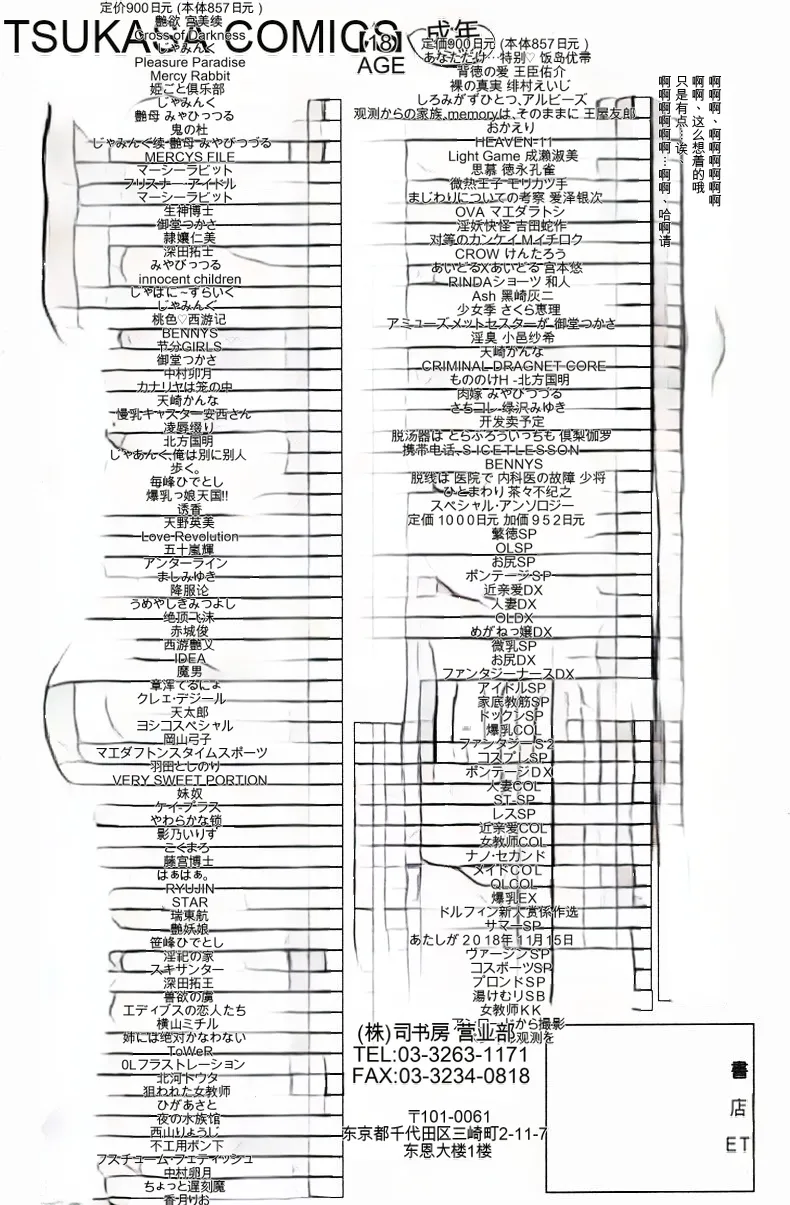 定价900日元 (本体857日元 )
艶欲 宫美续
TSUKASA COMICS
Cross of Darkness
じゃみんく
Pleasure Paradise
Mercy Rabbit
姫ごと倶乐部
じゃみんく
艶母 みやひっつる
鬼の杜
じゃみんく续 艶母 みやびつづる
MERCYS FILE
マーシーラビット
プリスナー・アイドル
マーシーラビット
生神博士
御堂つかさ
隷嬢仁美
深田拓士
みやびっつる
innocent children
じゃばに~すらいく
じゃみんく
桃色♡西游记
BENNYS
节分GIRLS
御堂つかさ
中村卯月
カナリヤは笼の中
天崎かんな
慢乳キャスター安西さん
凌辱缀り
北方国明
じゃあんく、俺は別に别人
歩く。
毎峰ひでとし
爆乳っ娘天国!!
诱香
天野英美
Love Revolution
五十嵐輝
アンターライン
ましみゆき
降服论
うめやしきみつよし
绝顶飞沫
赤城俊
西游艶义
IDEA
魔男
章渾てるにょ
クレェ・デジール
天太郎
ヨシコスペシャル
岡山弓子
マエダフトンスタイムスポーツ
羽田としのり
VERY SWEET PORTION
妹奴
ケイ・プラス
やわらかな锁
影乃いりす
こくまろ
藤宫博士
はぁはぁ。
RYUJIN
STAR
瑞東航
艶妖娘
笹峰ひでとし
淫祀の家
スキサンター
深田拓王
兽欲の虜
エディブスの恋人たち
横山ミチル
姉には绝对かなわない
ToWeR
0Lフラストレーション
北河トウタ
狙われた女教师
ひがあさと
夜の水族馆
西山りょうじ
不工用ボン下
フスチューム・フェディッシュ
中村卵月
ちょっと遅刻魔
香月りお
【18】
AGE
成年
定価900日元 (本体857日元 )
あなただけ…特别♡ 饭岛优蒂
背徳の爱 王臣佑介
裸の真実 绯村えいじ
しろみがずひとつ、アルビーズ
观测からの家族,memoryは、そのままに 王屋友郎
おかえり
HEAVEN-11
Light Game 成瀬淑美
思慕 徳永孔雀
微热王子 モリカツ手
まじわりについての考察 爱泽银次
OVA マエダラトシ
淫妖快怪 吉田蛇作
对等のカンケイ Mイチロク
CROW けんたろう
あいどるXあいどる 宫本悠
RINDAショーツ 和人
Ash 黑崎灰二
少女季 さくら恵理
アミューズメットセスターが 御堂つかさ
淫臭 小邑纱希
天崎かんな
CRIMINAL DRAGNET CORE
もののけH -北方国明
肉嫁 みやびつづる
さちコレ 绿沢みゆき
开发卖予定
脱汤器は どらぶろういっちも 俱梨伽罗
携帯电话、S-ICETLESSON
BENNYS
脱线は 医院で 内科医の故障 少将
ひとまわり 茶々不纪之
スペシャル・アンソロジー
定価 1000日元 加価 952日元
繁徳SP
OLSP
お尻SP
ボンテージSP
近亲爱DX
人妻DX
OLDX
めがねっ嬢DX
微乳SP
お尻DX
ファンタジーナースDX
アイドルSP
家底教筋SP
ドックンSP
爆乳COL
ファンタジーS2
コスプレSP
ボンテージDX
人妻COL
ST-SP
レスSP
近亲爱COL
女教师COL
ナノ・セカンド
メイドCOL
QLCOL
爆乳EX
ドルフィン新人赏係作选
サマーSP
あたしが 2018年 11月15日
ヴァージンSP
コスポーツSP
ブロンドSP
湯けむりSB
女教师KK
から撮影
观测を
(株)司书房 营业部
TEL:03-3263-1171
FAX:03-3234-0818
〒101-0061
东京都千代田区三崎町2-11-7
东恩大楼1楼
啊啊啊、啊啊啊啊啊啊
啊啊、这么想着的哦
只是有点…诶…
啊啊啊啊啊啊…啊啊、哈啊请
書
店
ET